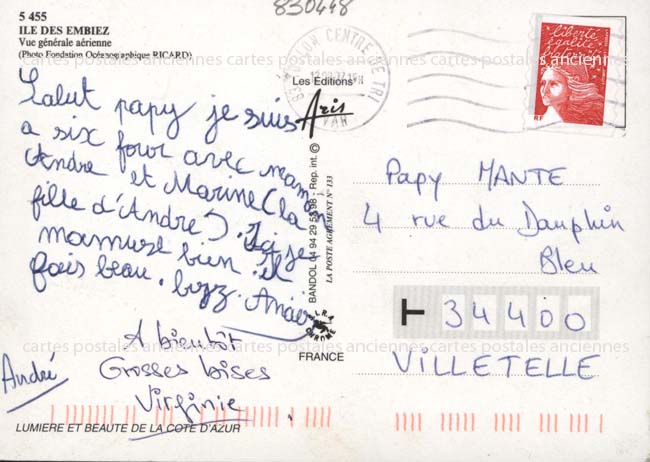 830448
5 455
ILE DES EMBIEZ
Vue générale aérienne
(Photo Fondation Océanographique RICARD)
Salut papy je suis
a six four avec maman
André et Marine (la
fille d'André). Ici je
mamuse bien il
fais beau. bizz. Anaïs
A bientôt
Grosses bises
Virginie
André
LUMIERE ET BEAUTE DE LA COTE D'AZUR
Les Editions
Aris
BANDOL 04 94 29 53 98 - Rep. int. ©
LA POSTE AGREMENT N° 133
FRANCE
TOULON CENTRE DE TRI
83
VAR
liberté
égalité
fraternité
Papy MANTE
4 rue du Dauphin
Bleu
34400
VILLETELLE
cartes postales anciennes cartes postales anciennes cartes postales anciennes
cartes postales anciennes cartes postales anciennes cartes postales anciennes